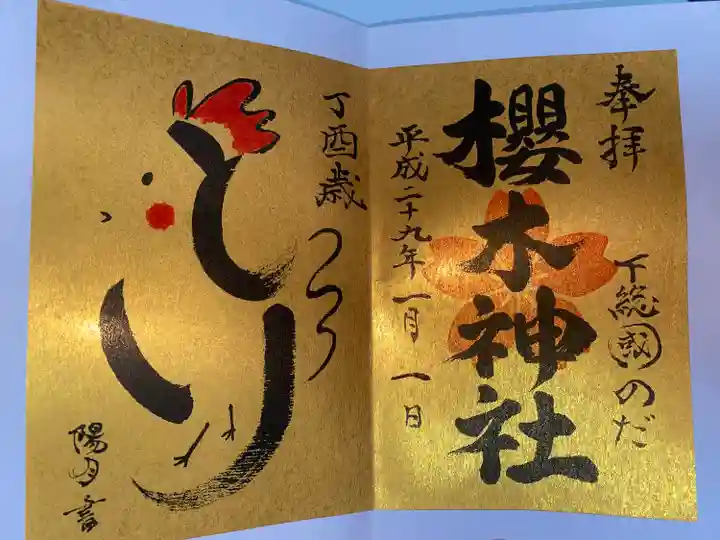 奉拝
下総國のだ
櫻木神社
平成二十九年一月一日
丁酉歳
とり
陽月書